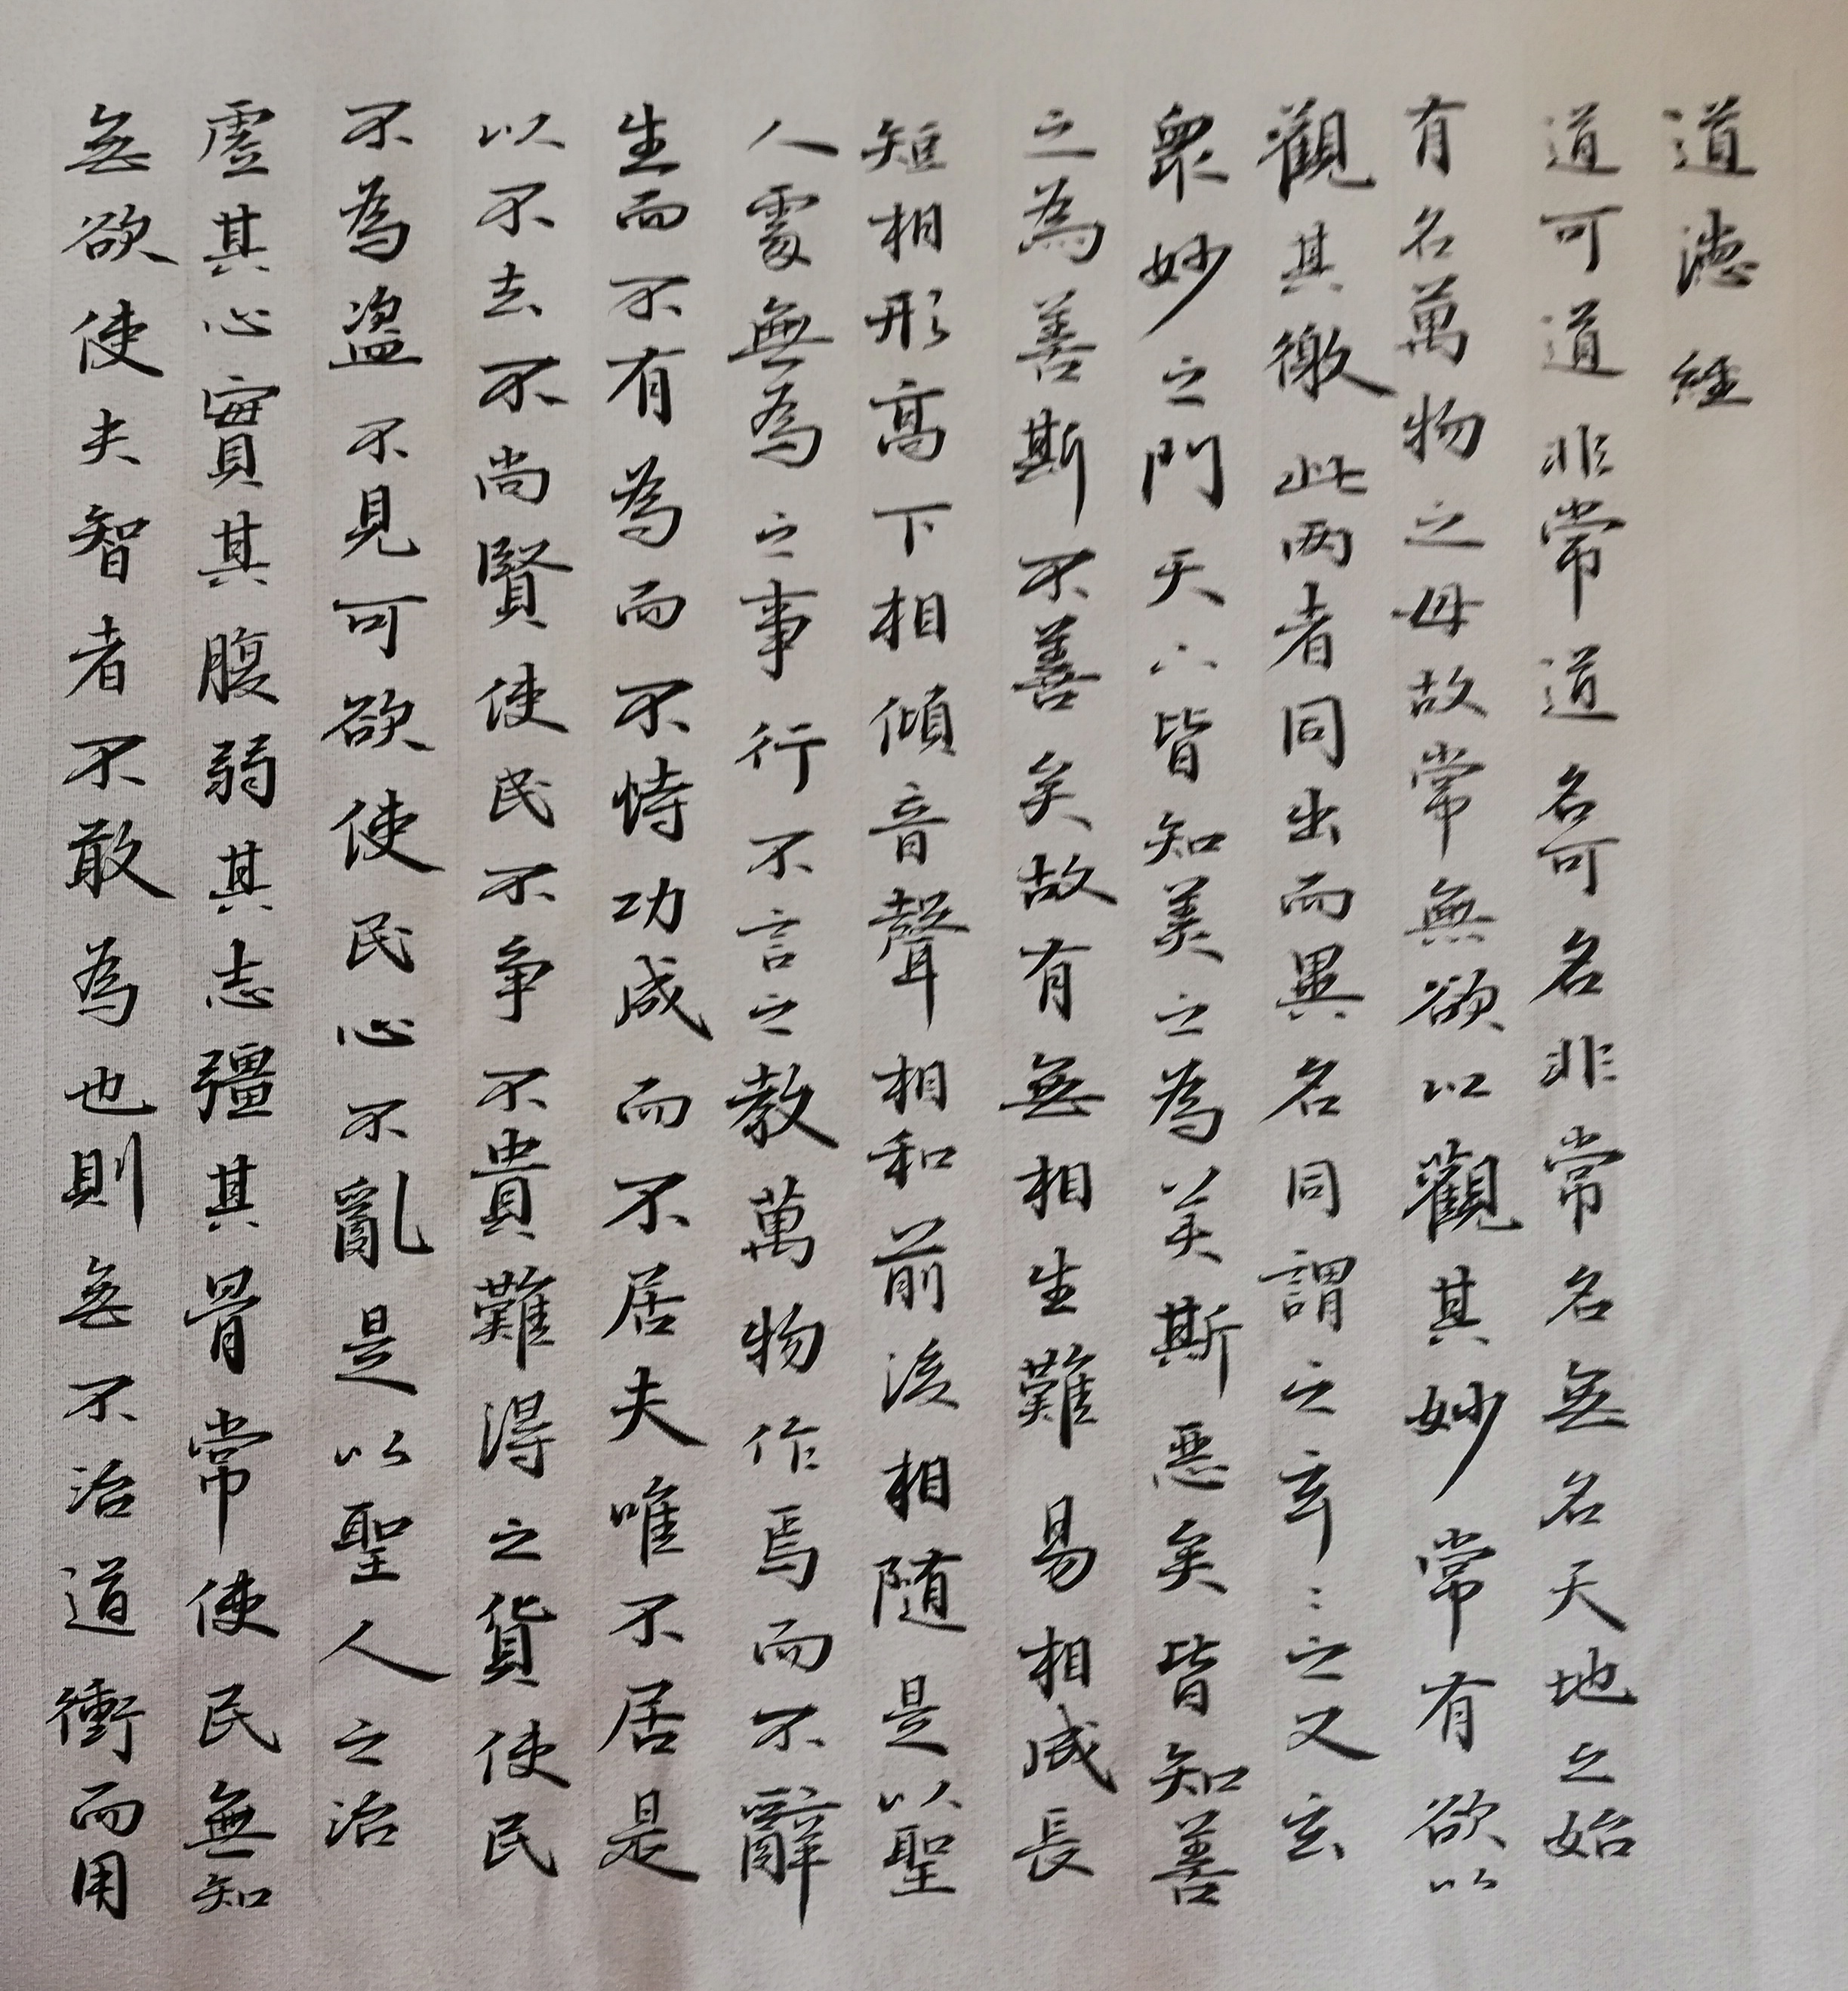 道德經
道可道非常道名可名非常名無名天地之始
有名萬物之母故常無欲以觀其妙常有欲以
觀其徼此兩者同出而異名同謂之玄〻之又玄
衆妙之門天下皆知美之為美斯惡矣皆知善
之為善斯不善矣故有無相生難易相成長
短相形高下相傾音聲相和前後相随是以聖
人處無為之事行不言之教萬物作焉而不辭
生而不有為而不恃功成而不居夫唯不居是
以不去不尚賢使民不争不貴難得之貨使民
不為盗不見可欲使民心不亂是以聖人之治
虛其心實其腹弱其志彊其骨常使民無知
無欲使夫智者不敢為也則無不治道衝而用